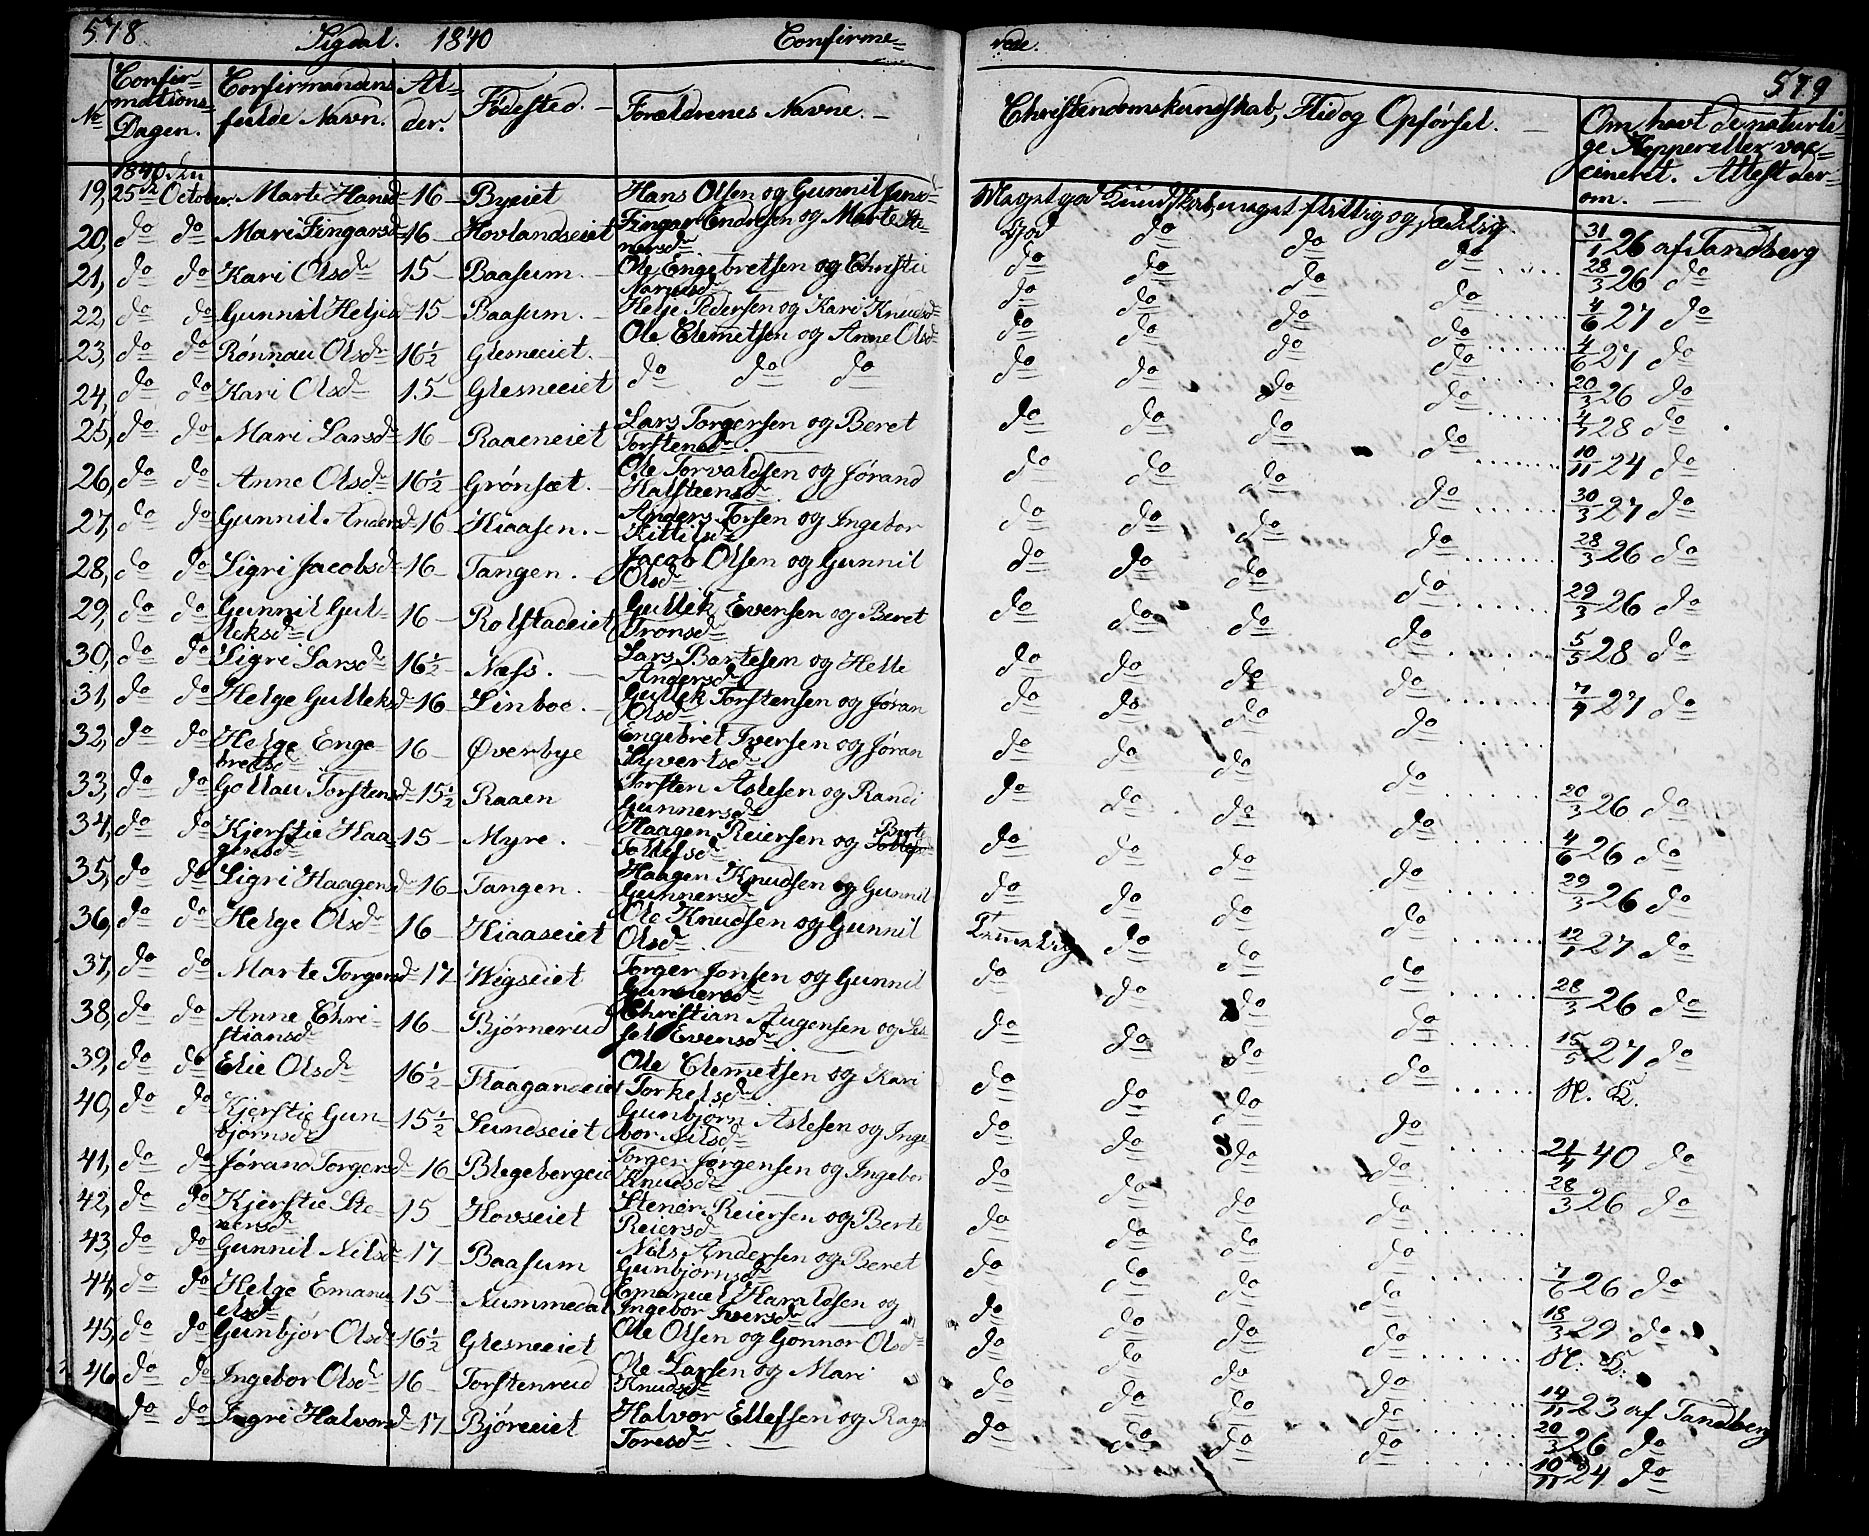 578 Sigdal. 1840 Confirme=
No Confir=mations Dagen. Confirmandens fulde Navn. Al=der. Fødested. Forældrenes Navne.
1840 den
19, 25de October. Marte Hansd 16 Byeiet Hans Olsen og Gunnil Jensd
20, do do Mari Fingarsd 16 Hovlandseiet Fingar Endresen og Marte Ste=
nersd
21, do do Kari Olsd 15 Baasum. Ole Engebretsen og Christie
22, do do Gunnil Heljesd 15 Baasum. Helje Pedersen og Kari Knudsd
23, do do Rønnau Olsd 16½ Glesneeiet. Ole Clemetsen og Anne Olsd
24, do do Kari Olsd 15 Glesneeiet do do do
25, do do Mari Larsd 16 Raaeneiet Lars Torgersen og Beret
Torstensd.
26, do do Anne Olsd 16½ Grønsæt. Ole Torvaldsen og Jørand
Halsteensd
27, do do Gunnil Andersd 16 Kiaasen. Anders Torsen og Ingebor
Kittilsd
28, do do Sigri Jacobsd 16 Tangen. Jacob Olsen og Gunnil
Olsd
29, do do Gunnil Gul= 16 Rolfstadeiet Gullek Evensen og Beret
leksd Tronsd
30, do do Sigri Larsd 16½ Næss. Lars Bartesen og Helle
Andersd
31, do do Helge Gulleksd 16 Linboe. Gullek Torstensen og Jøran
Olsd
32, do do Helge Enge= 16 Øverbye Engebret Iversen og Jøran
bretsd Syvertsd
33, do do Gollau Torstensd 15½ Raaen Torsten Aslesen og Randi
Gunnersd
34, do do Kjerstie Haa= 15 Myre. Haagen Reiersen og Berte
gensd Tollefsd
35, do do Sigri Haagensd 16 Tangen. Haagen Knudsen og Gunnil
Gunnersd
36, do do Helge Olsd 16 Kiaaseiet Ole Knudsen og Gunnil
Olsd
37, do do Marte Torgersd 17 Wigseiet Torger Jonsen og Gunnil
Gunnersd
38, do do Anne Chri= 16 Bjørnerud Christian Augensen og Sis
stiansd sel Evensd
39, do do Elie Olsd 16½ Flaagandeiet Ole Clemetsen og Kari
Torkelsd
40, do do Kjerstie Gun= 15½ Sundseiet Gunbjørn Aslesen og Inge
bjørnsd bor Nilsd
41, do do Jørand Torgersd 16 Blegebergeiet Torger Jørgensen og Ingebor
Knudsd
42, do do Kjerstie Ste= 15 Hovseiet Stener Reiersen og Berte
nersd Reiersd
43, do do Gunnil Nilsd 17 Baasum Nils Andersen og Beret
Gunbjørnsd
44, do do Helge Emanu 15 Nummedal Emanuel Haraldsen og
elsd Ingebor Iversd
45, do do Gunbjør Olsd 16½ Glesneeiet Ole Olsen og Gonnor Olsd
46 do do Ingebor Olsd 16 Torstenrud Ole Larsen og Mari
Knudsd
do do Ingri Halvorsd 17 Bjøreeiet Halvor Ellefsen og Rag
Toresd.
rede. 579
Christendomskundskab, Flid og Opførsel. Om havt de naturli=
ge Kopper eller vac=
cineret. Attest der=
om.
Meget god Kundskab, meget flittig og sædelig.
God do do do 31/1 26 af Tandberg
do do do do 28/3 26 do
do do do do 4/6 27 do
do do do do 4/6 27 do
do do do do 20/3 26 do
do do do do 4/1 28 do
do do do do 10/11 24 do
do do do do 30/3 27 do
do do do do 28/3 26 do
do do do do 29/3 26 do
do do do do 5/5 28 do
do do do do 7/7 27 do
do do do do
do do do do 20/3 26 do
do do do do 4/6 26 do
do do do do 29/3 26 do
Temmelig do do do 12/1 27 do
do do do do 28/3 26 do
do do do do 15/5 27 do
do do do do N. K.
do do do do 21/4 40 do
do do do do 28/3 26 do
do do do do
do do do do 7/6 26 do
do do do do 18/3 29 do
do do do do N. K.
do do do do 14/11 23 af Tandberg
do do do do 20/3 26 do
10/11 24 do